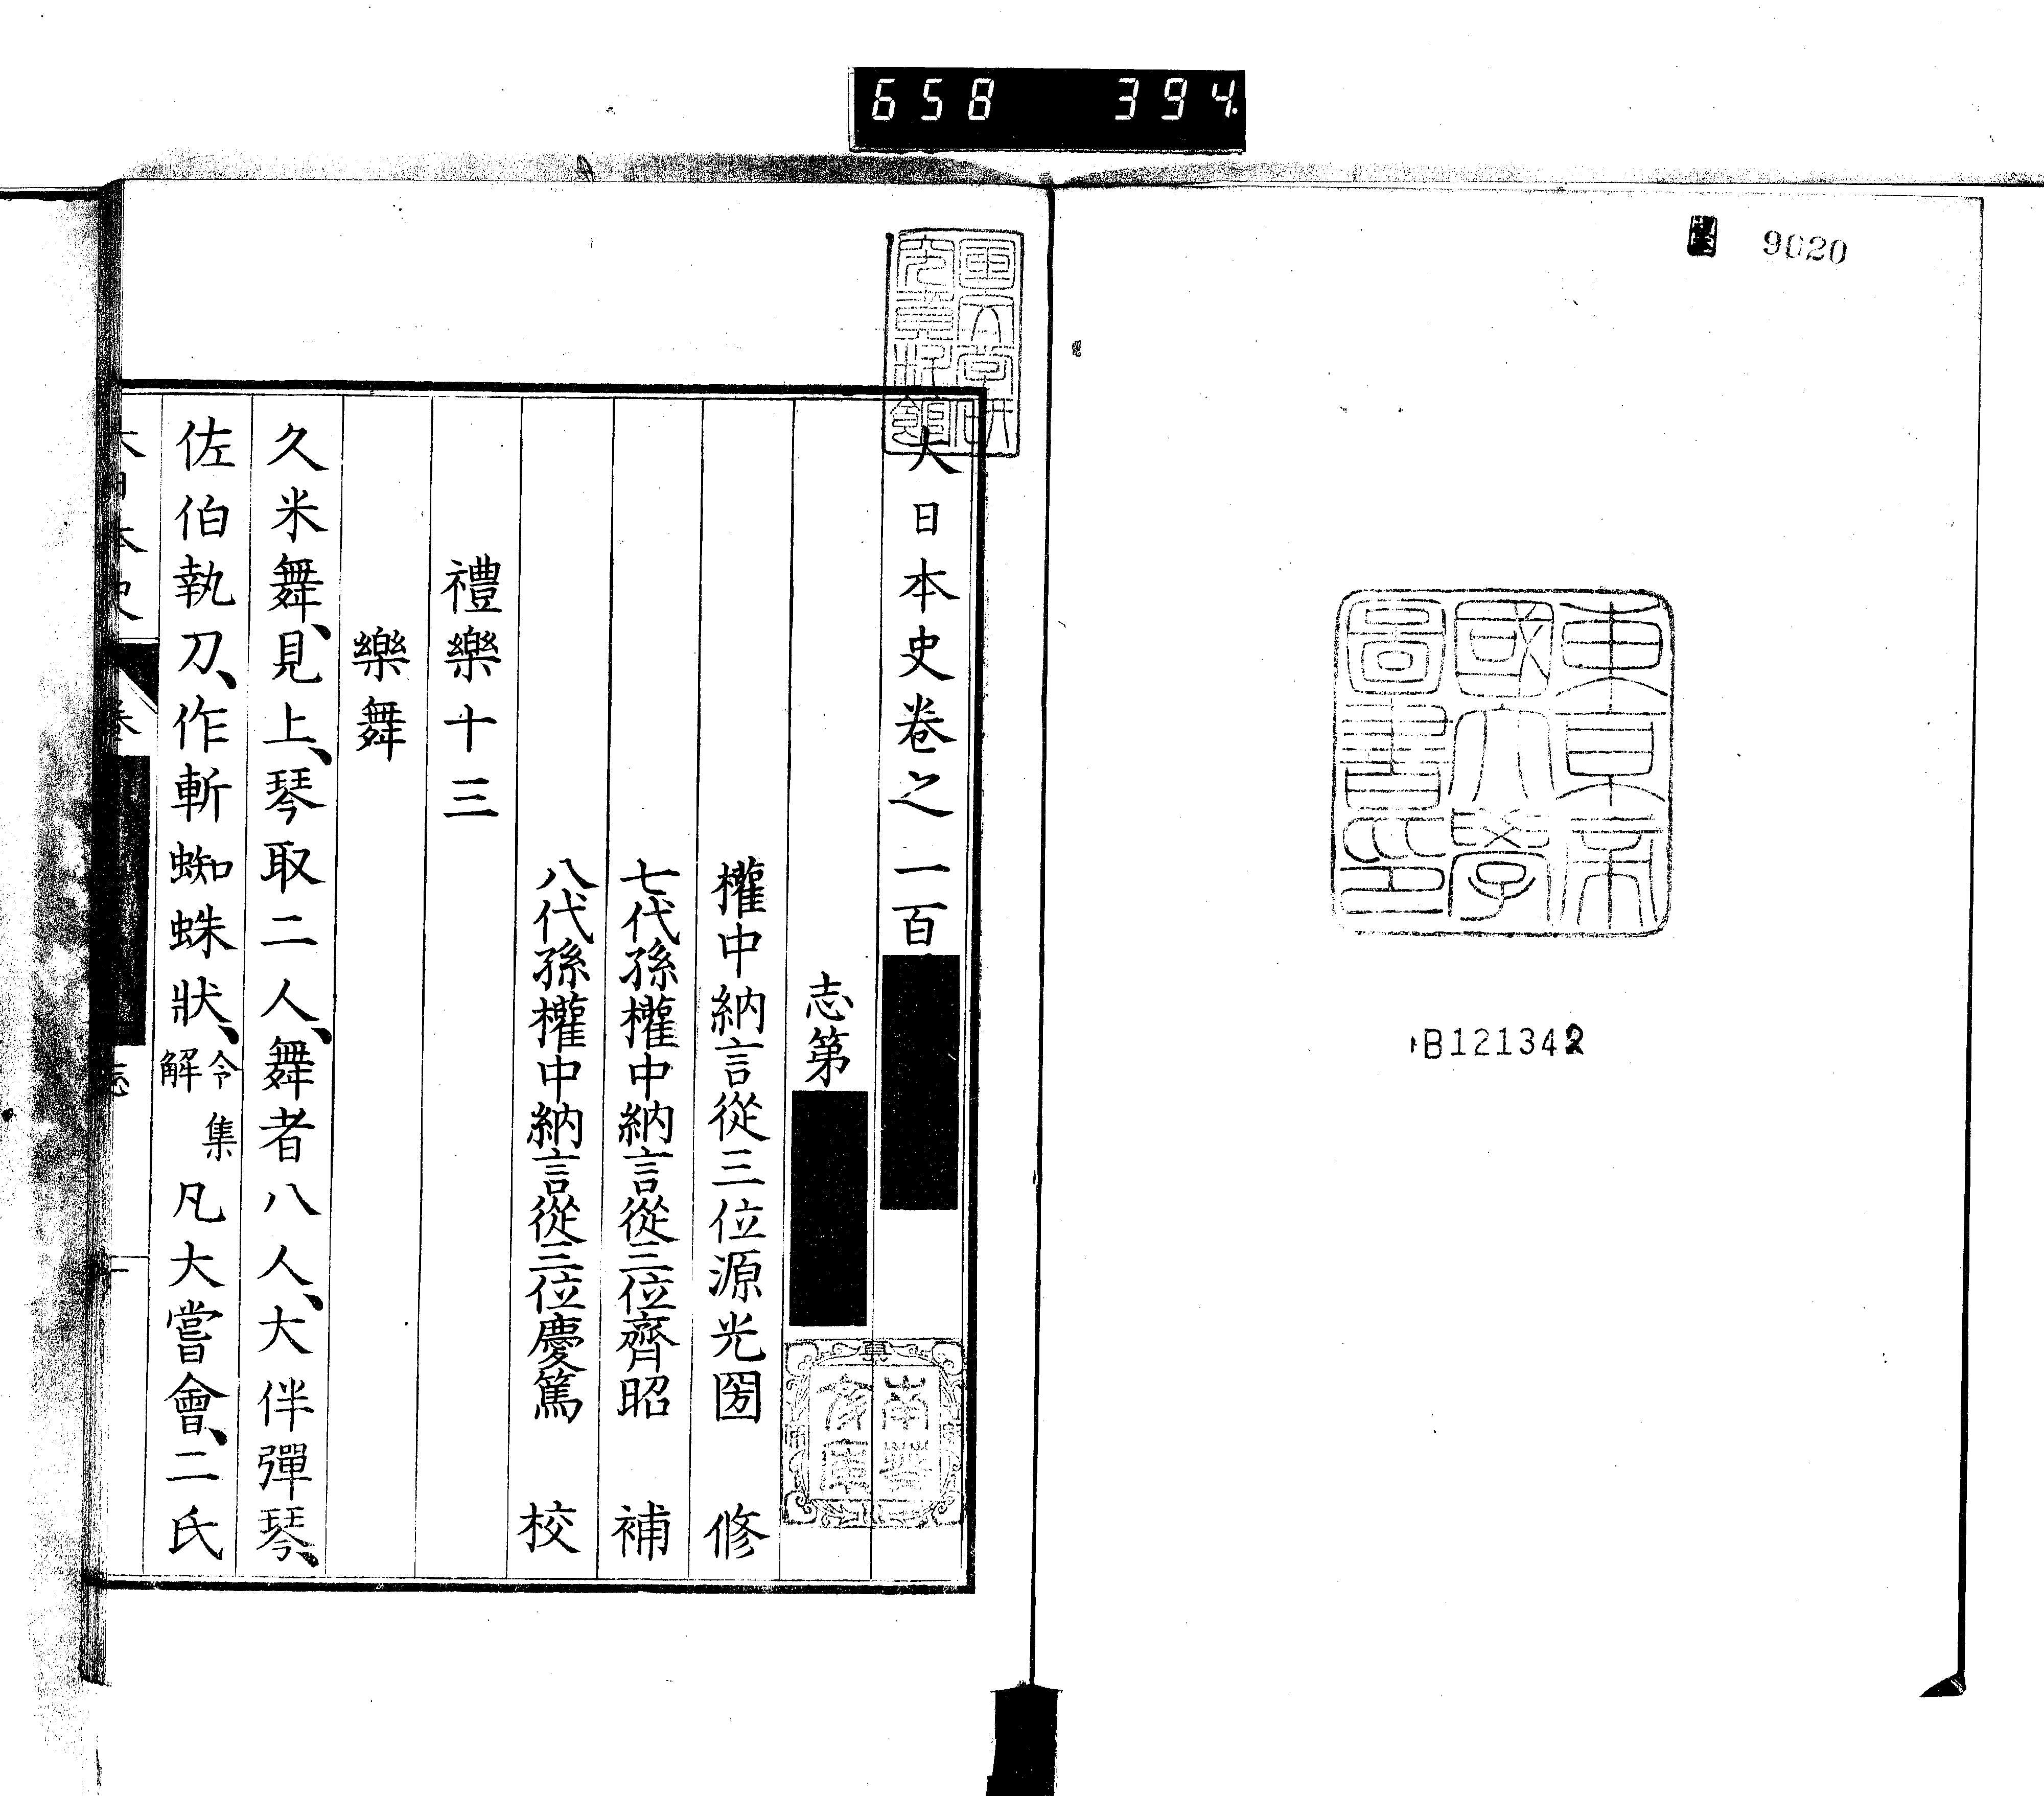 658 394
9020
東京帝
國大學
圖書印
B121342
大日本史卷之一百
志第
權中納言從三位源光圀 修
七代孫權中納言從三位齊昭 補
八代孫權中納言從三位慶篤 校
禮樂十三
樂舞
久米舞、見上、琴取二人、舞者八人、大伴彈琴、
佐伯執刀、作斬蜘蛛狀、令集解凡大嘗會、二氏